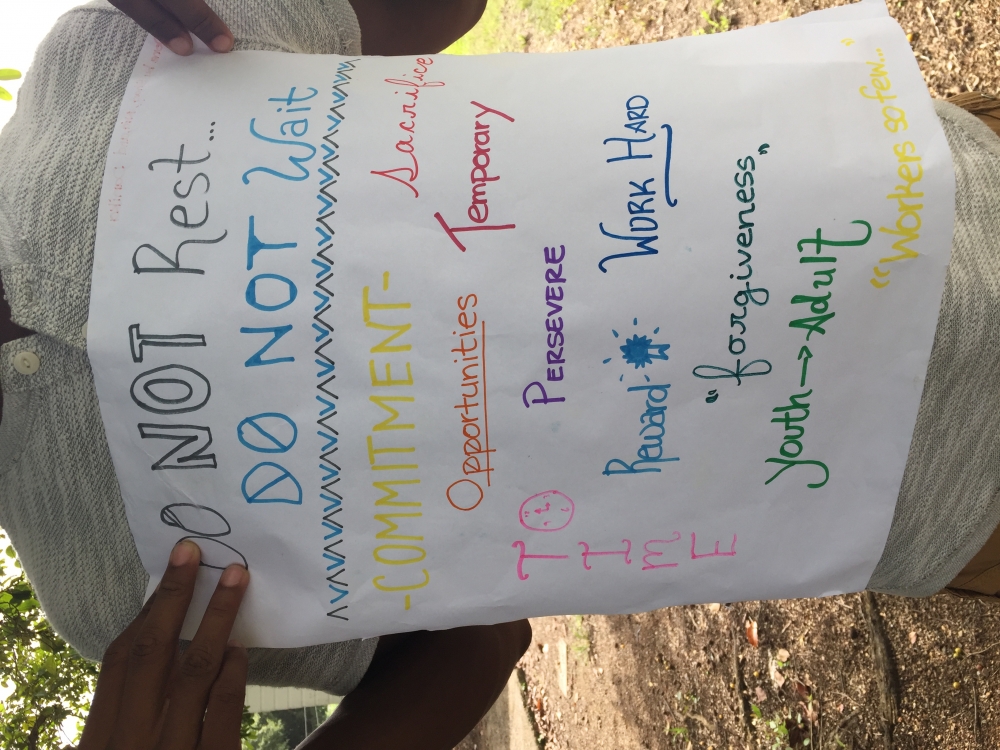 DO NOT Rest...
DO NOT Wait
-COMMITMENT- Sacrifice
Opportunities Temporary
TIME PERSEVERE
Reward WORK HARD
"forgiveness"
Youth → Adult
"Workers so few..."